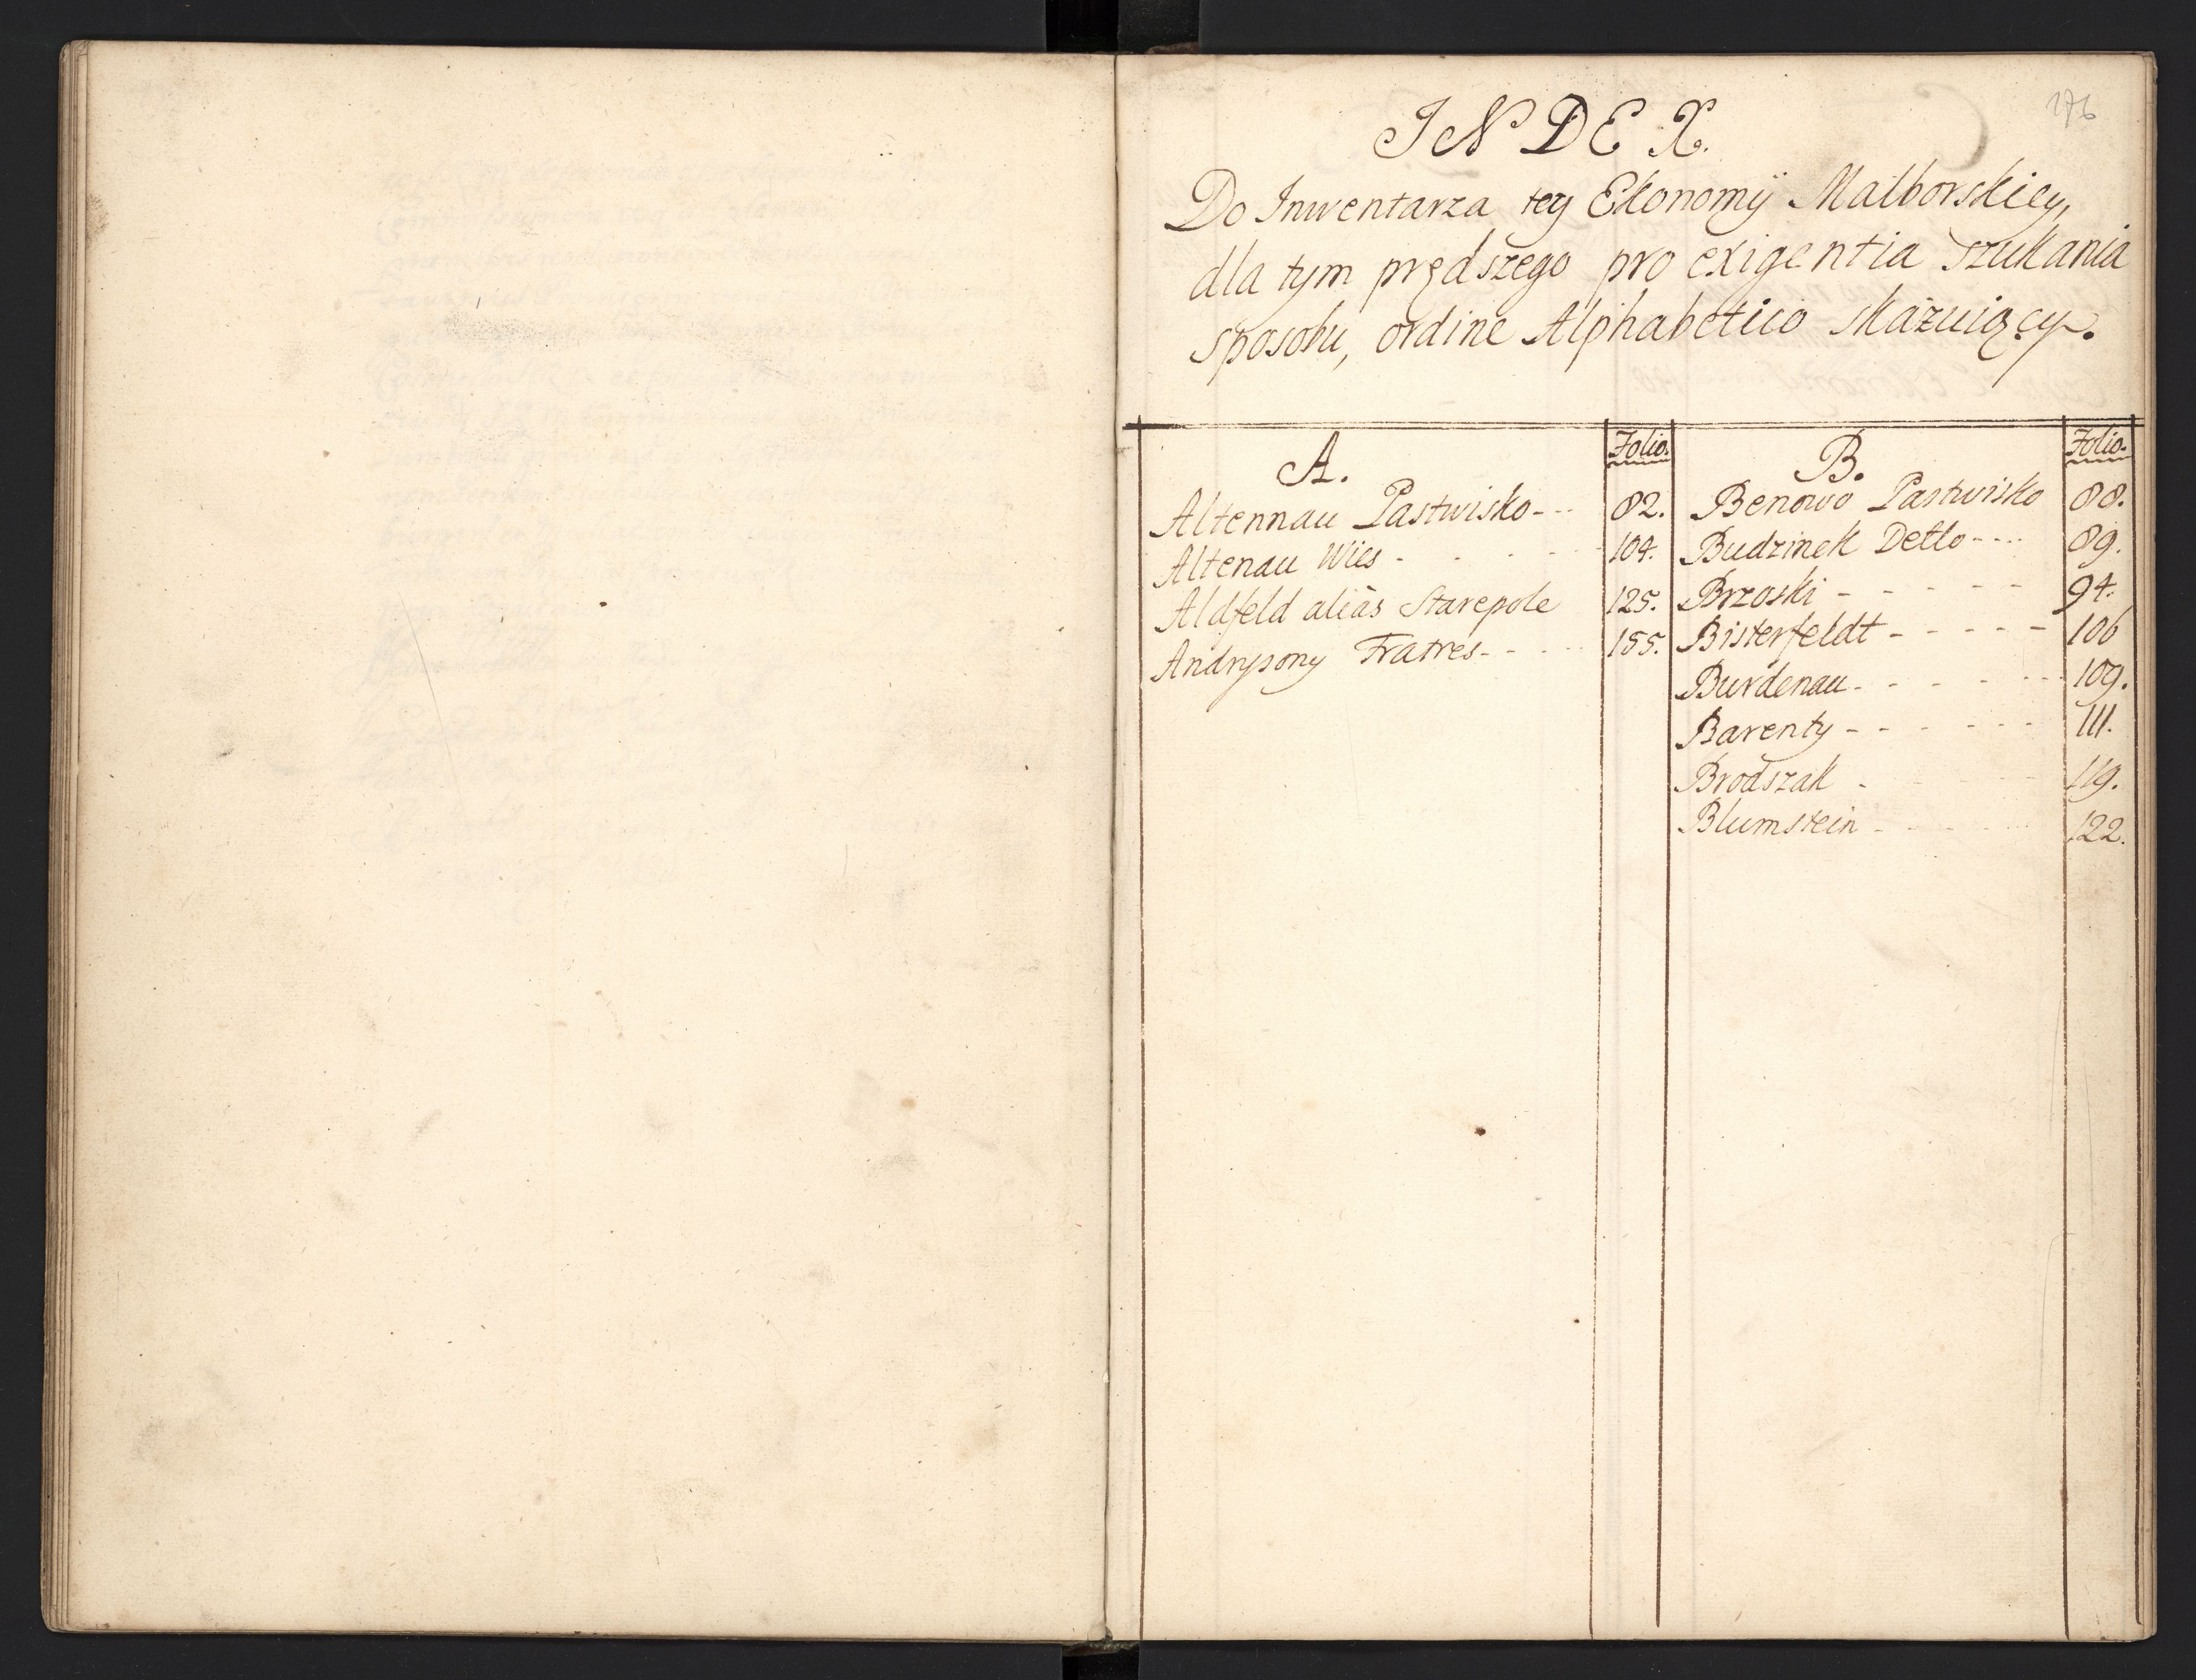 176
INDEX.
Do Inwentarza tey Ekonomÿ Malborskiey,
dla tym prędszego pro exigentia szukania
sposobu, ordine Alphabetico skazuiący.
A. Folio. B. Folio.
Altennau Pastwisko - - - 82. Benowo Pastwisko 88.
Altenau Wies - - - - - 104. Budzinek Detto - - - - 89.
Aldfeld aliàs Starepole 125. Brzoski - - - - - 94.
Andrysony Fratres - - - - 155. Bisterfeldt - - - - - 106
Burdenau - - - - - - 109.
Barenty - - - - - - - 111.
Brodszak - 119.
Blumstein - - - - - 122.